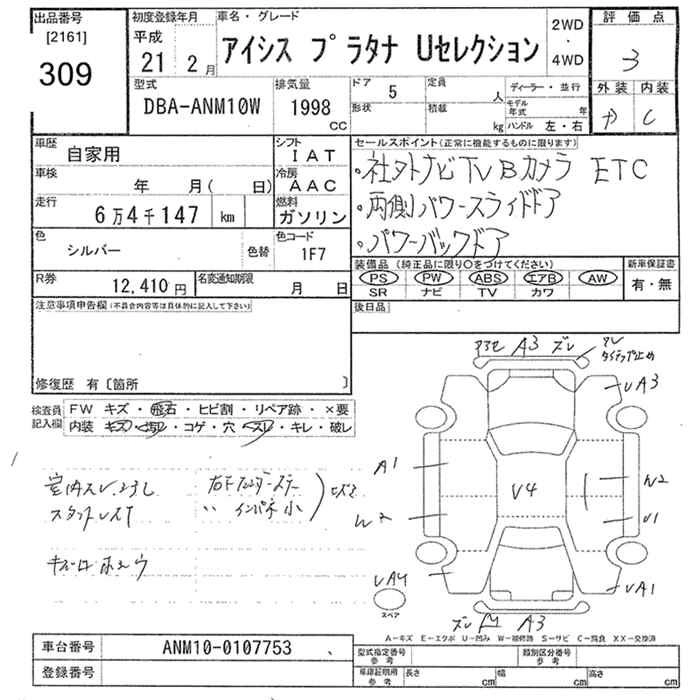 出品番号
[2161]
309
初度登録年月
平成
21 2月
車名・グレード
アイシス プラタナ Uセレクション
2WD
・
4WD
評価点
3
外装 内装
C
型式
DBA-ANM10W
排気量
1998
CC
ドア
5
形状
定員
人
積載
kg
ディーラー・並行
モデル年式 年
ハンドル 左・右
車歴
自家用
シフト
IAT
車検
年 月( 日)
冷房
AAC
走行
6万4千147 km
燃料
ガソリン
色
シルバー
色替
色コード
1F7
R券
12,410 円
名変通知期限
月 日
セールスポイント(正常に機能するものに限ります)
・社外ナビTV Bカメラ ETC
・両側パワースライドドア
・パワーバックドア
装備品(純正品に限り○をつけてください)
PS PW ABS エアB AW
SR ナビ TV カワ
新車保証書
有・無
後日品
注意事項申告欄(不具合内容等は具体的に記入して下さい)
修復歴 有〔箇所 〕
検査員記入欄
FW キズ・飛石・ヒビ割・リペア跡・×要
内装 キズ・汚レ・コゲ・穴・スレ・キレ・破レ
A3 ズレ
UA3
A1
W2
V4
W2
U1
UA4
UA1
スペア
ズレ A3
A-キズ E-エクボ U-凹み W-補修跡 S-サビ C-腐食 XX-交換済
車台番号
ANM10-0107753
登録番号
型式指定番号
参考
類別区分番号
参考
車庫証明用
参考
長さ cm
幅 cm
高さ cm